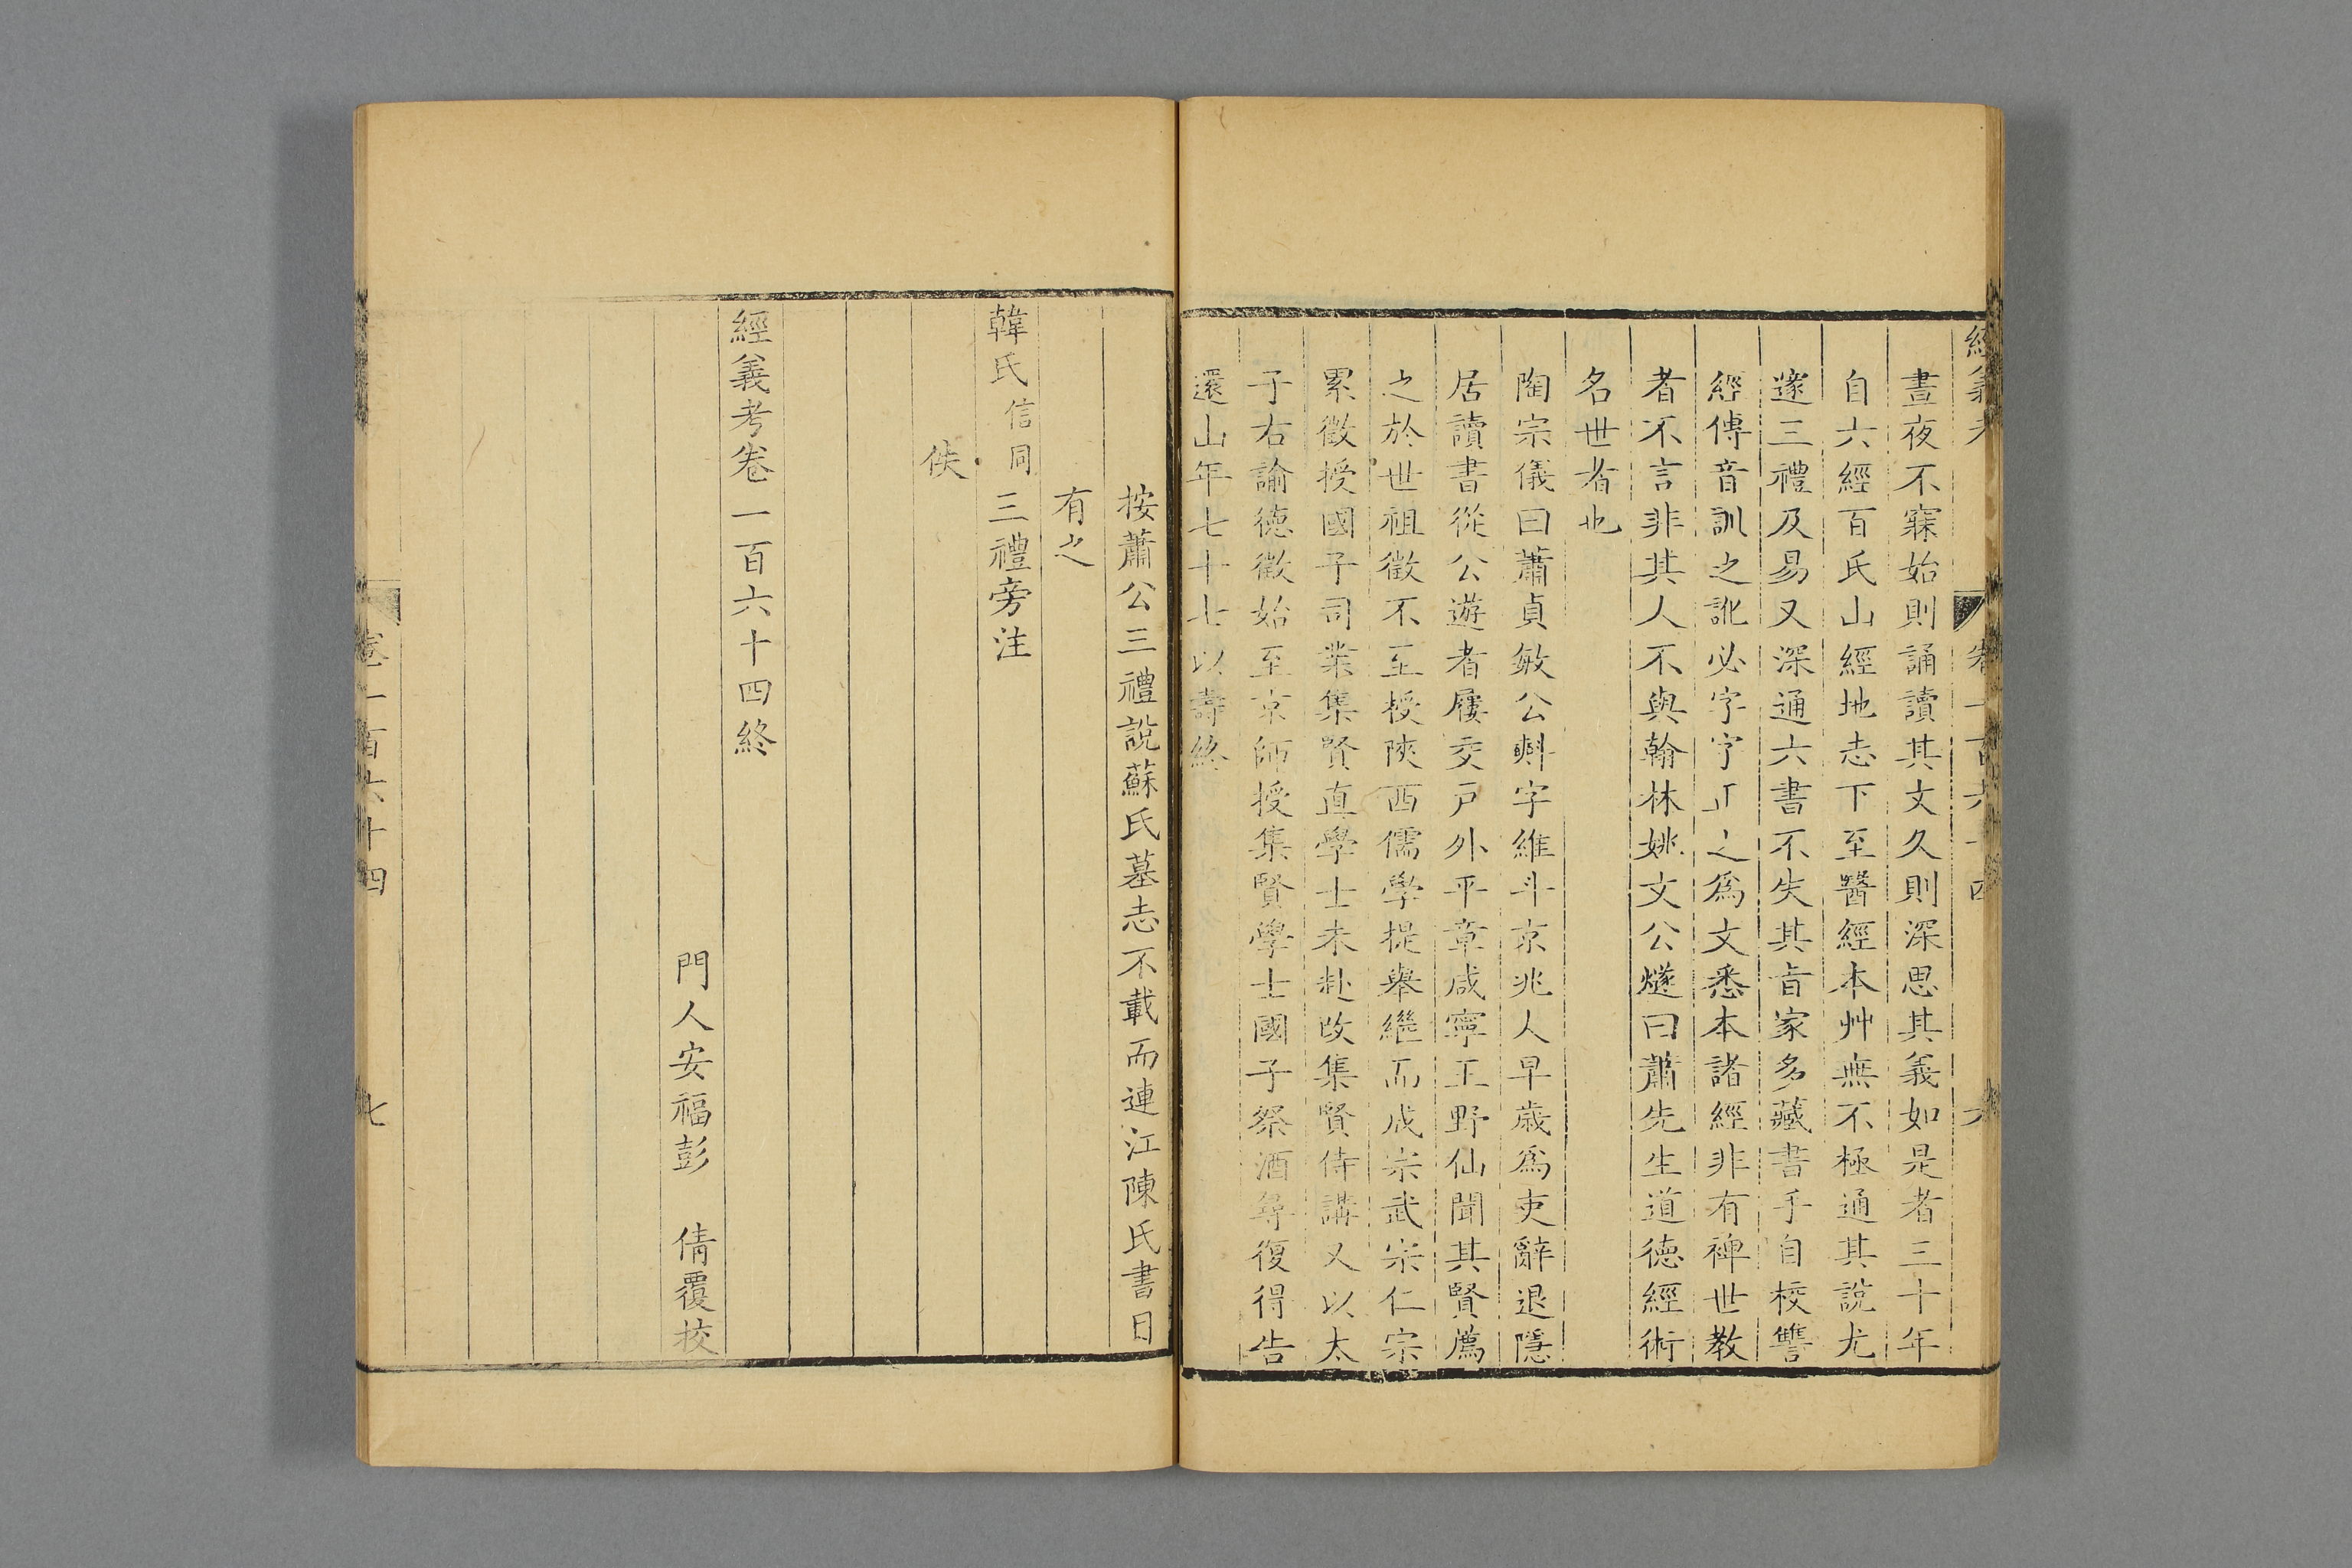 經義考 卷一百六十四 六
晝夜不寐始則誦讀其文久則深思其義如是者三十年
自六經百氏山經地志下至醫經本艸無不極通其說尤
邃三禮及易又深通六書不失其旨家多藏書手自校讐
經傳音訓之訛必字字正之爲文悉本諸經非有裨世教
者不言非其人不與翰林姚文公燧曰蕭先生道德經術
名世者也
陶宗儀曰蕭貞敏公㪺字維斗京兆人早歲爲吏辭退隱
居讀書從公遊者屨交戸外平章咸寧王野仙聞其賢薦
之於世祖徵不至授陝西儒學提舉繼而成宗武宗仁宗
累徵授國子司業集賢直學士未赴改集賢侍講又以太
子右諭德徵始至京師授集賢學士國子祭酒尋復得告
還山年七十七以壽終
按蕭公三禮說蘇氏墓志不載而連江陳氏書目
有之
韓氏信同三禮旁注
佚
經義考卷一百六十四終
門人安福彭 倩覆挍
卷一百六十四 七